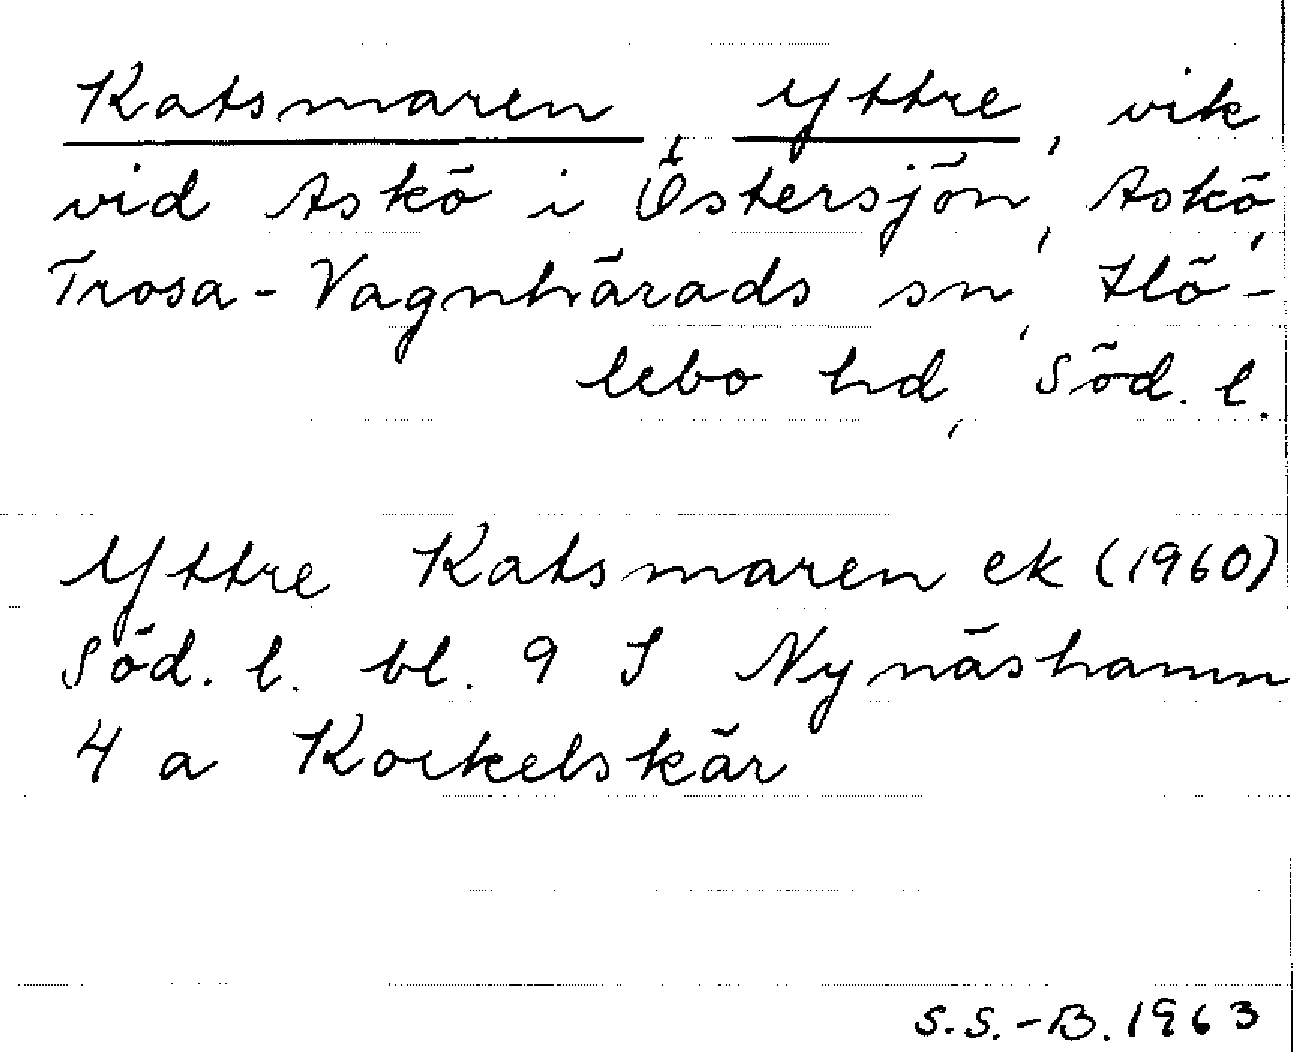 Katsmaren, Yttre, vik
vid Askö i Östersjön, Askö,
Trosa-Vagnhärads sn, Hö-
lebo hd, Söd. l.
Yttre Katsmaren ek (1960)
Söd. l. bl. 9 S Nynäshamn
4 a Kockelskär
S.S.-B. 1963